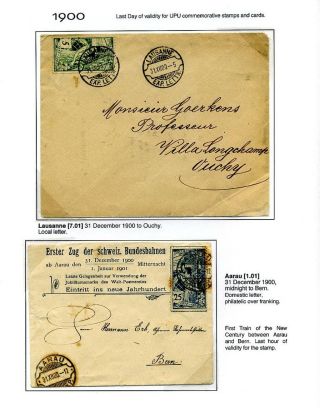 1900
Last Day of validity for UPU commemorative stamps and cards.
LAUSANNE
EXP. LETTR.
LAUSANNE
31.XII.00.-5
EXP. LETTR.
Monsieur Goerkens
Professeur
Villa Longchamp
Ouchy
Lausanne [7.01] 31 December 1900 to Ouchy.
Local letter.
Erster Zug der schweiz. Bundesbahnen
31. Dezember 1900
ab Aarau den Mitternacht
1. Januar 1901
Letzte Gelegenheit zur Verwendung der
Jubiläumsmarke des Welt-Postverein
Eintritt ins neue Jahrhundert
25
Herrn Hermann
Bern
AARAU
31.XII.00.-12
Aarau [1.01]
31 December 1900,
midnight to Bern.
Domestic letter,
philatelic over franking.
First Train of the New
Century between Aarau
and Bern. Last hour of
validity for the stamp.